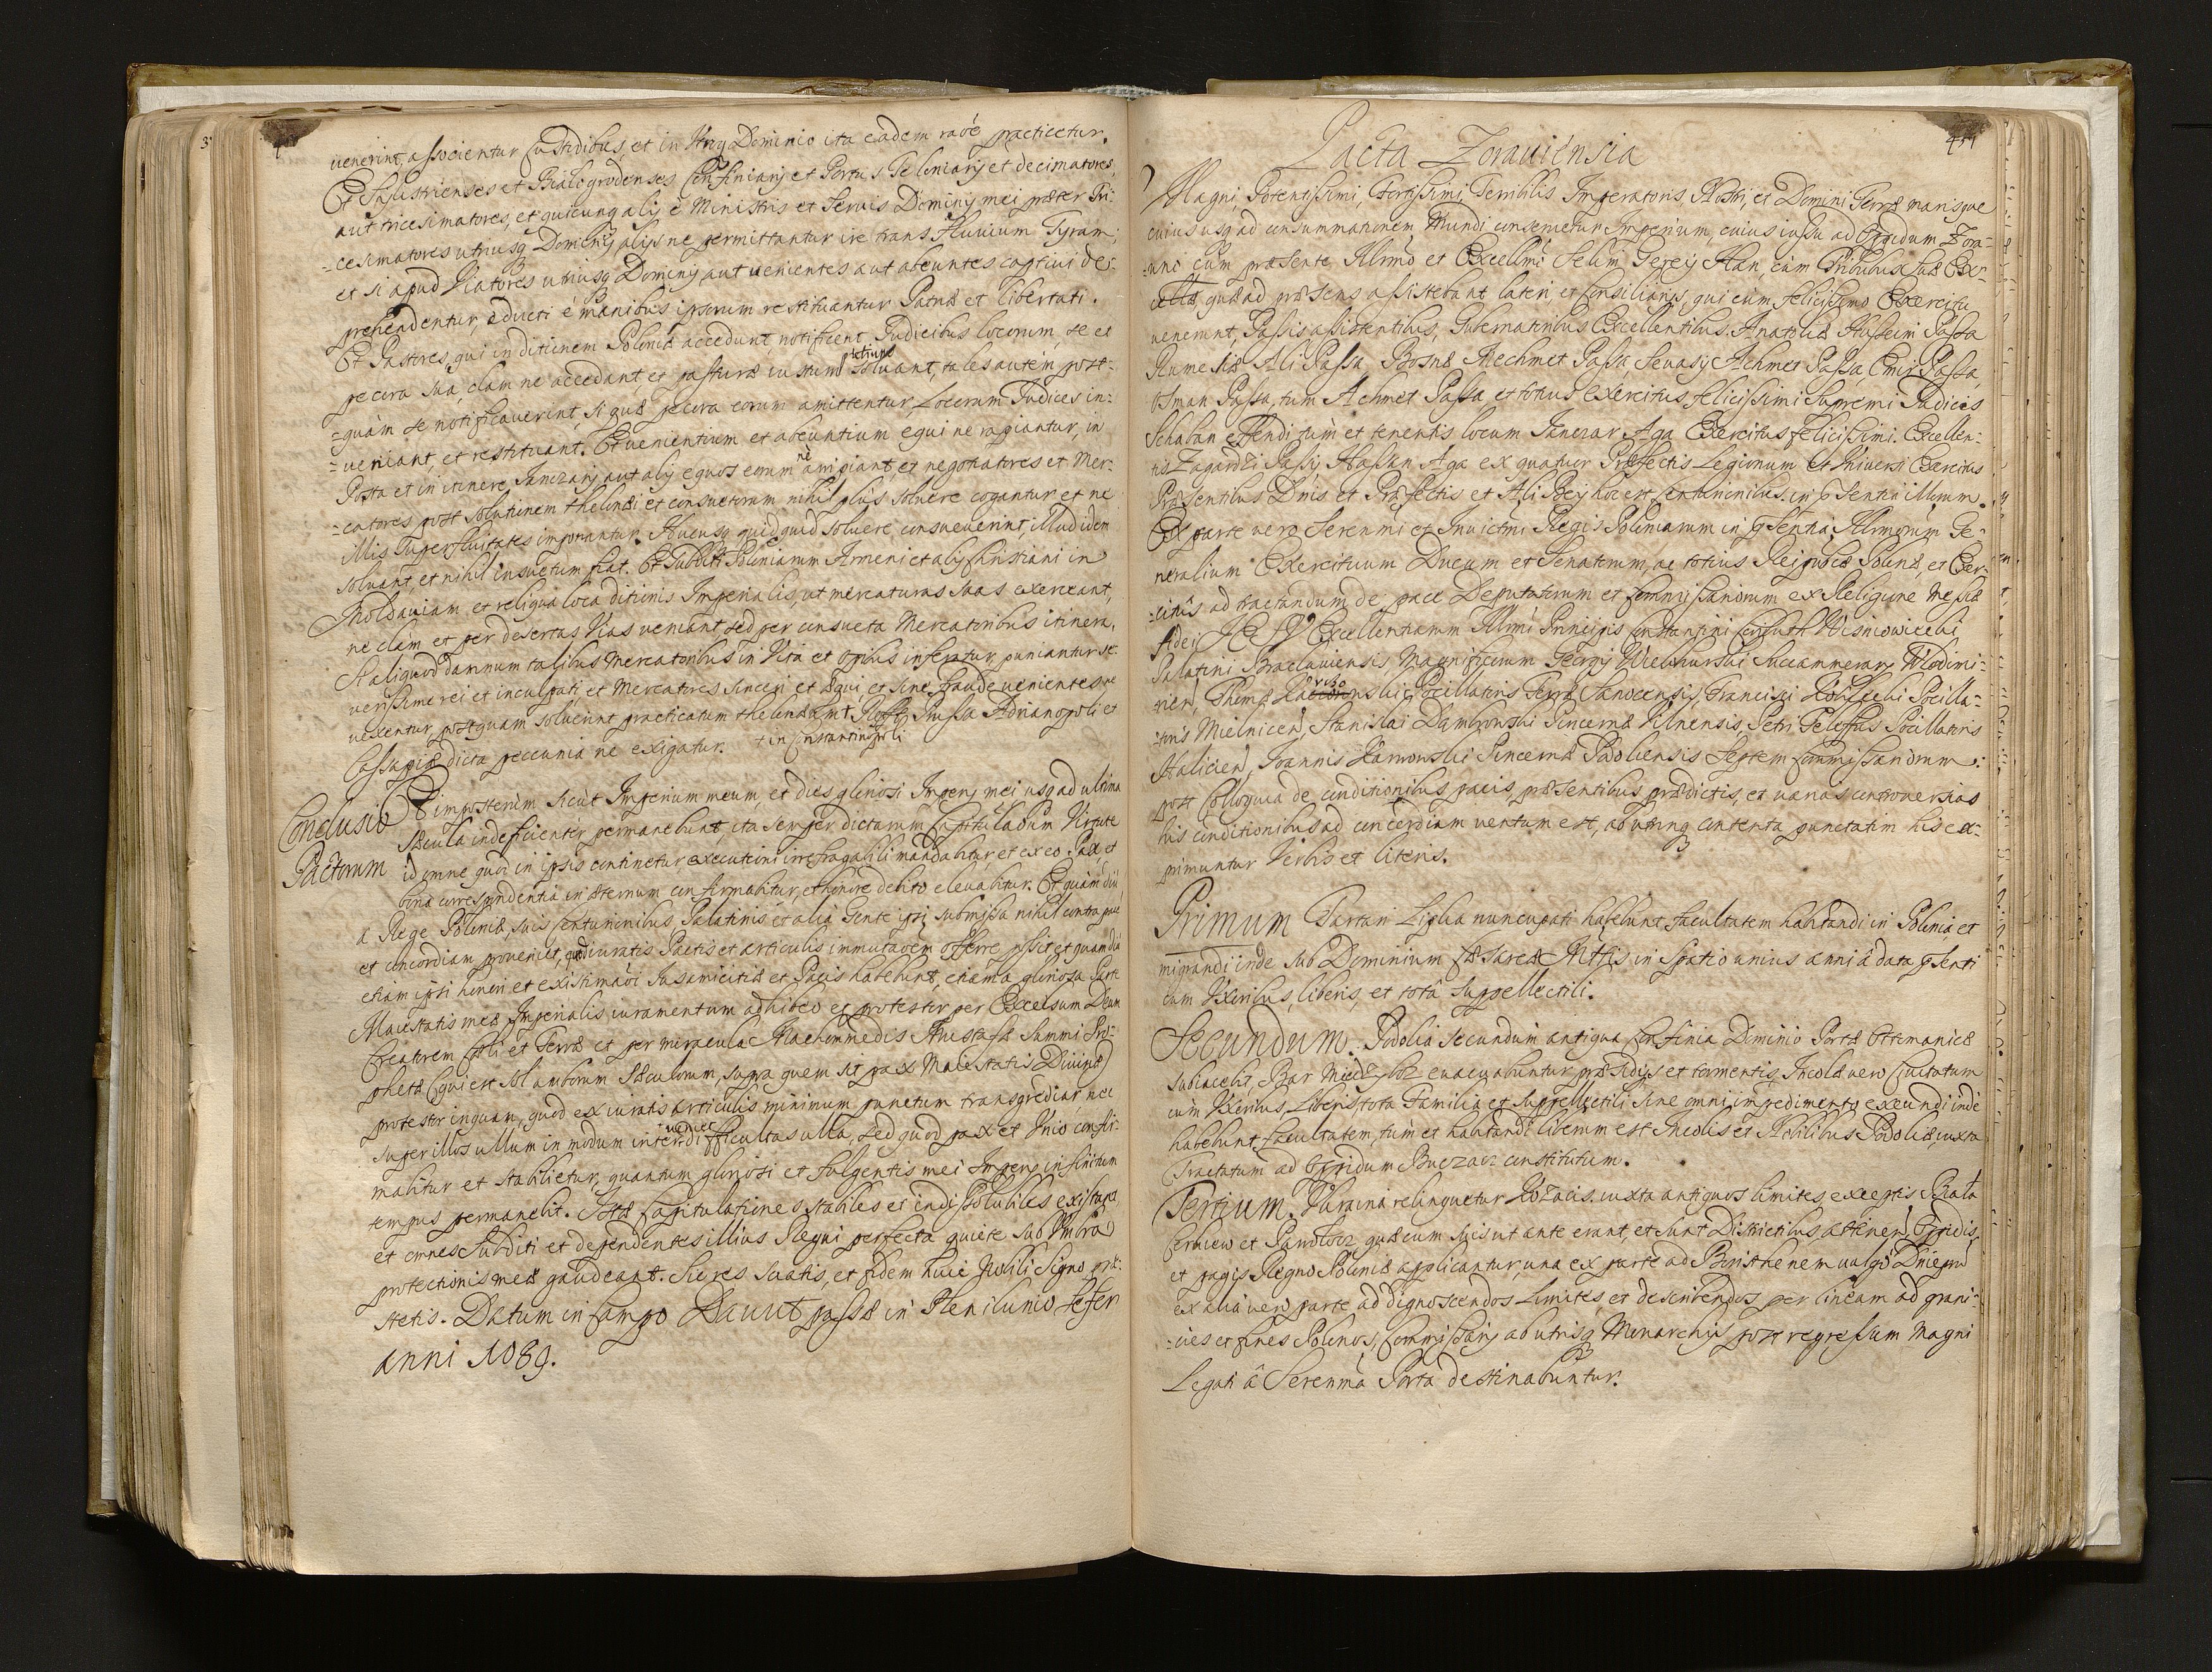 uenerint, associentur Custodibus, et in Utroq Dominio ita eadem raõe practicetur.
Et Silistrienses et Bialogrodenses Confiniarij et Portus Teloniarij et decimatores,
aut tricesimatores, et quicunq alij è Ministris et Seruis Dominij mei præter Tri-
-cesimatores utriusq Dominij, alijs ne permittantur ire trans Fluuium Tyram,
et si apud Viatores utriusq Dominij aut uenientes aut abeuntes captiui de-
prehendentur, educti è manibus ipsorum restituantur Patriæ et libertati.
Et Pastores, qui in ditionem Poloniæ accedunt, notificent Judicibus locorum, se et
pecora sua, clam ne accedant et pasturæ iustum pretium soluant, tales autem post-
-quàm se notificauerint, si quæ pecora eorum amittentur, Locorum Judices in-
-ueniant, et restituant. Et uenientium et abeuntium equi ne rapiantur, in
Posta et in itinere Janczarij aut alij equos eorum nè arripiant, et negotiatores et Mer-
-catores post solutionem thelonei et consuetorum nihil plus soluere cogantur et ne
illis superfluitates imponantur. Hucusq quidquid soluere consueuerint, illud idem
soluant, et nihil insuetum fiat. Et Subditi Poloniarum Armeni et alij Christiani in
Moldauiam et reliqua loca ditionis Imperialis, ut mercaturas suas exerceant,
ne clam et per desertas Vias ueniant sed per consueta Mercatoribus itinera.
Si aliquod damnum talibus Mercatoribus in Vita et opibus inferatur, puniantur se-
uerissime rei et inculpati, et Mercatores sinceri et æqui, et sine fraude uenientes ne
uexentur, postquam soluerint practicatum theloneum + Prussa Adrianopoli et
Cassapiæ dicta peccunia ne exigatur. + in Constantinopoli
Conclusio Et imposterùm sicùt Imperium meum, et dies gloriosi Imperij mei usq ad ultima
Sæcula indeficienter permanebunt, ita semper dictarum Capitulaõum Virtute
Pactorum id omne quod in ipsis continetur, executioni irrefragabili mandabitur, et ex eo Pax, et
bona correspondentia in æternum confirmabitur, et honore debito eleuabitur. Et quàm diù
à Rege Poloniæ, suis Centurionibus Palatinis et aliâ Gente ipsi submissa nihil contra pacē
et concordiam proueniet, quod iuratis Pactis et articulis immutaõem offerre possit et quam diù
etiam ipsi honori et existimaõi suis amicitiæ et Pacis habebunt, etiam à gloriosa Parte
Maiestatis meæ Imperialis iuramentum adhibeo et protestor per Excelsum Deum
Creatorem Cæli et Terræ et per miracula Machommedis Mustafæ Summi Pro-
phetæ (qui est Sol amborum Sæculorum, supra quem sit pax Maiestatis Diuinæ)
protestor inquam, quod ex iuratis articulis minimum punctum transgrediar nec
super illos ullum in modum intercedet difficultas ulla, sed quod pax et Unio confir-
mabitur et stabilietur, quantum gloriosi et fulgentis mei Imperij infinitum
tempus permanebit. Istæ Capitulationes stabiles et indissolubiles existant
et omnes Subditi et dependentes illius Regni perfecta quiete sub Umbra
protectionis meæ gaudeant. Sic res sciatis, et fidem huic Nobili Signo præ-
stetis. Datum in Campo Dauut passæ in Plenilunio Sefer
anni 1089.
451
Pacta Zorauiénsia
Magni, Potentissimi, Fortissimi, Terribilis Imperatoris, Nostri, et Domini Terræ marisque
cuius usq ad consummationem Mundi conseruetur Imperium, cuius iussu ad Oppidum Zora-
-uno cùm præsente Illrmo et Excellmi Selim Gerey Han, cùm Tribubus suæ Ex-
cellæ, quæ ad præsens assistebant lateri et Consiliarijs, qui cùm felicissimo Exercitu
uenerunt, Passis assistentibus, Gubernatoribus Excellentibus. Anatoliæ Hussein Passa
Rumeliæ Ali Passa, Bosnæ Mechmet Passa Seuasij Achmet Passa, Emir Passa,
Osman Passa, tum Achmet Passa et totius Exercitus felicissimi Supremi Judicis
Schaban Effendi tùm et tenentis locum Janczar Aga Exercitus felicissimi. Excellen-
tis Zagardzi Passij Hassan Aga ex quatuor Præfectis Legionum et Uniuersi Exercitus
Præsentibus Dnis et Præfectis et Ali Beij hoc est Centurionibus. in psentia illorum.
Ex parte vero Serenmi et Inuictmi Regis Poloniarum in psentia: Illrmorum Ge-
neralium Exercituum Ducum et Senatorum, ac totius Reipubcæ Polonæ, et Exer-
-citûs ad tractandum de pace Deputatorum et Commissariorum ex Religione Messiæ
fidei JESU Excellentiarum Illrmi Principis Constantini Coributh Wisniowiecki
Palatini Braclauiensis Magnificorum Georgij Wielhorski Succamerarij Wlodimi-
rien, Thomæ Karczewski Pocillatoris Terræ Sanocensis, Francisci Kobielecki Pocilla-
-toris Mielnicen, Stanislai Dambrowski Pincernæ Vilnensis, Petri Telefus Pocillatoris
Halicien, Joannis Karwowski Pincernæ Podoliensis Septem Commissariorum:
post Colloquia de conditionibus pacis, præsentibus prædictis, et uarias controuersias
his conditionibus ad concordiam ventum est, ab utrinq contenta punctatim his ex-
primuntur Verbis et literis.
Primum Tartari Lipka nuncupati habebunt facultatem habitandi in Polonia, et
migrandi inde sub Dominium Cæsareæ Mttis in spatio unius anni â data psenti
cum Uxoribus, liberis, et totâ Suppellectili.
Secundum. Podolia secundum antiqua Confinia Dominio Portæ Ottomanicæ
subiacebit, Bar Miedzyboz euacuabuntur præsidijs et tormentis, Incolæ vero Ciuitatum
cùm Uxoribus, Liberis, tota Familia et Suppellectili sine omni impedimento exeundi inde
habebunt facultatem, tùm et habitandi liberum est Incolis et Nobilibus Podoliæ, iuxta
Tractatum ad Oppidum Buczacz constitutum.
Tertium. Ukraina relinquetur Kozacis iuxta antiquos limites exceptis Biala
Cerkiew et Pawolocz quæ cum suis ut ante erant, et sunt Districtibus, attinen. Oppidis,
et pagis Regno Poloniæ applicantur, una ex parte ad Boristhenem uulgò Dniepru
ex alia vero parte ad dignoscendos Limites, et describendos per lineam ad grani-
-cies et fines Polonos, Commissarij ab utrisq Monarchijs post regressum Magni
Legati â Serenmâ Porta destinabuntur.